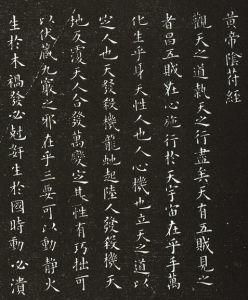 黃帝陰符經
觀天之道執天之行盡矣天有五賊見之
者昌五賊在心施行於天宇宙在乎手萬
化生乎身天性人也人心機也立天之道以
定人也天發殺機龍虵起陸人發殺機天
地反覆天人合發萬變定其性有巧拙可
以伏藏九竅之邪在乎三要可以動靜火
生於木禍發必尅奸生於國時動必潰